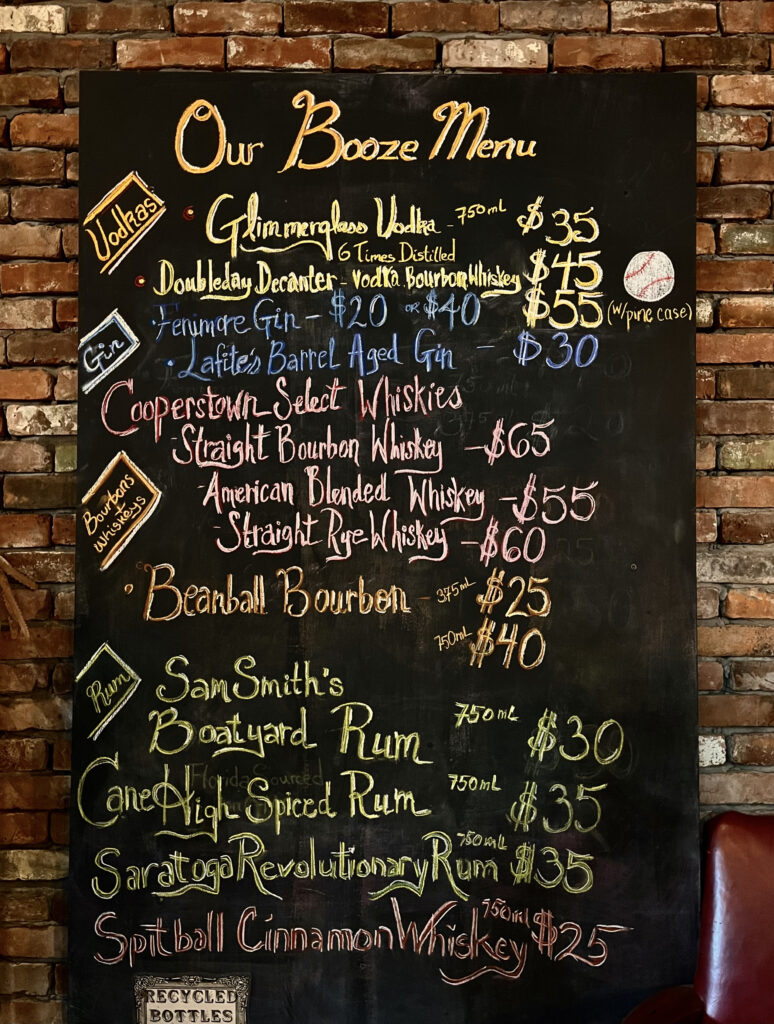 Our Booze Menu
Vodkas
Glimmerglass Vodka - 750 mL $35
6 Times Distilled
Doubleday Decanter - Vodka Bourbon Whiskey $45
$55 (w/pine case)
Gin
Fenimore Gin - $20 OR $40
Lafite's Barrel Aged Gin - $30
Cooperstown Select Whiskies
-Straight Bourbon Whiskey - $65
Bourbons
Whiskeys
-American Blended Whiskey - $55
-Straight Rye Whiskey - $60
Beanball Bourbon - 375 mL $25
750 mL $40
Rum
Sam Smith's
Boatyard Rum 750 mL $30
Florida Sourced
Cane High Spiced Rum 750 mL $35
Saratoga Revolutionary Rum 750 mL $35
Spitball Cinnamon Whiskey 750 ml $25
RECYCLED
BOTTLES